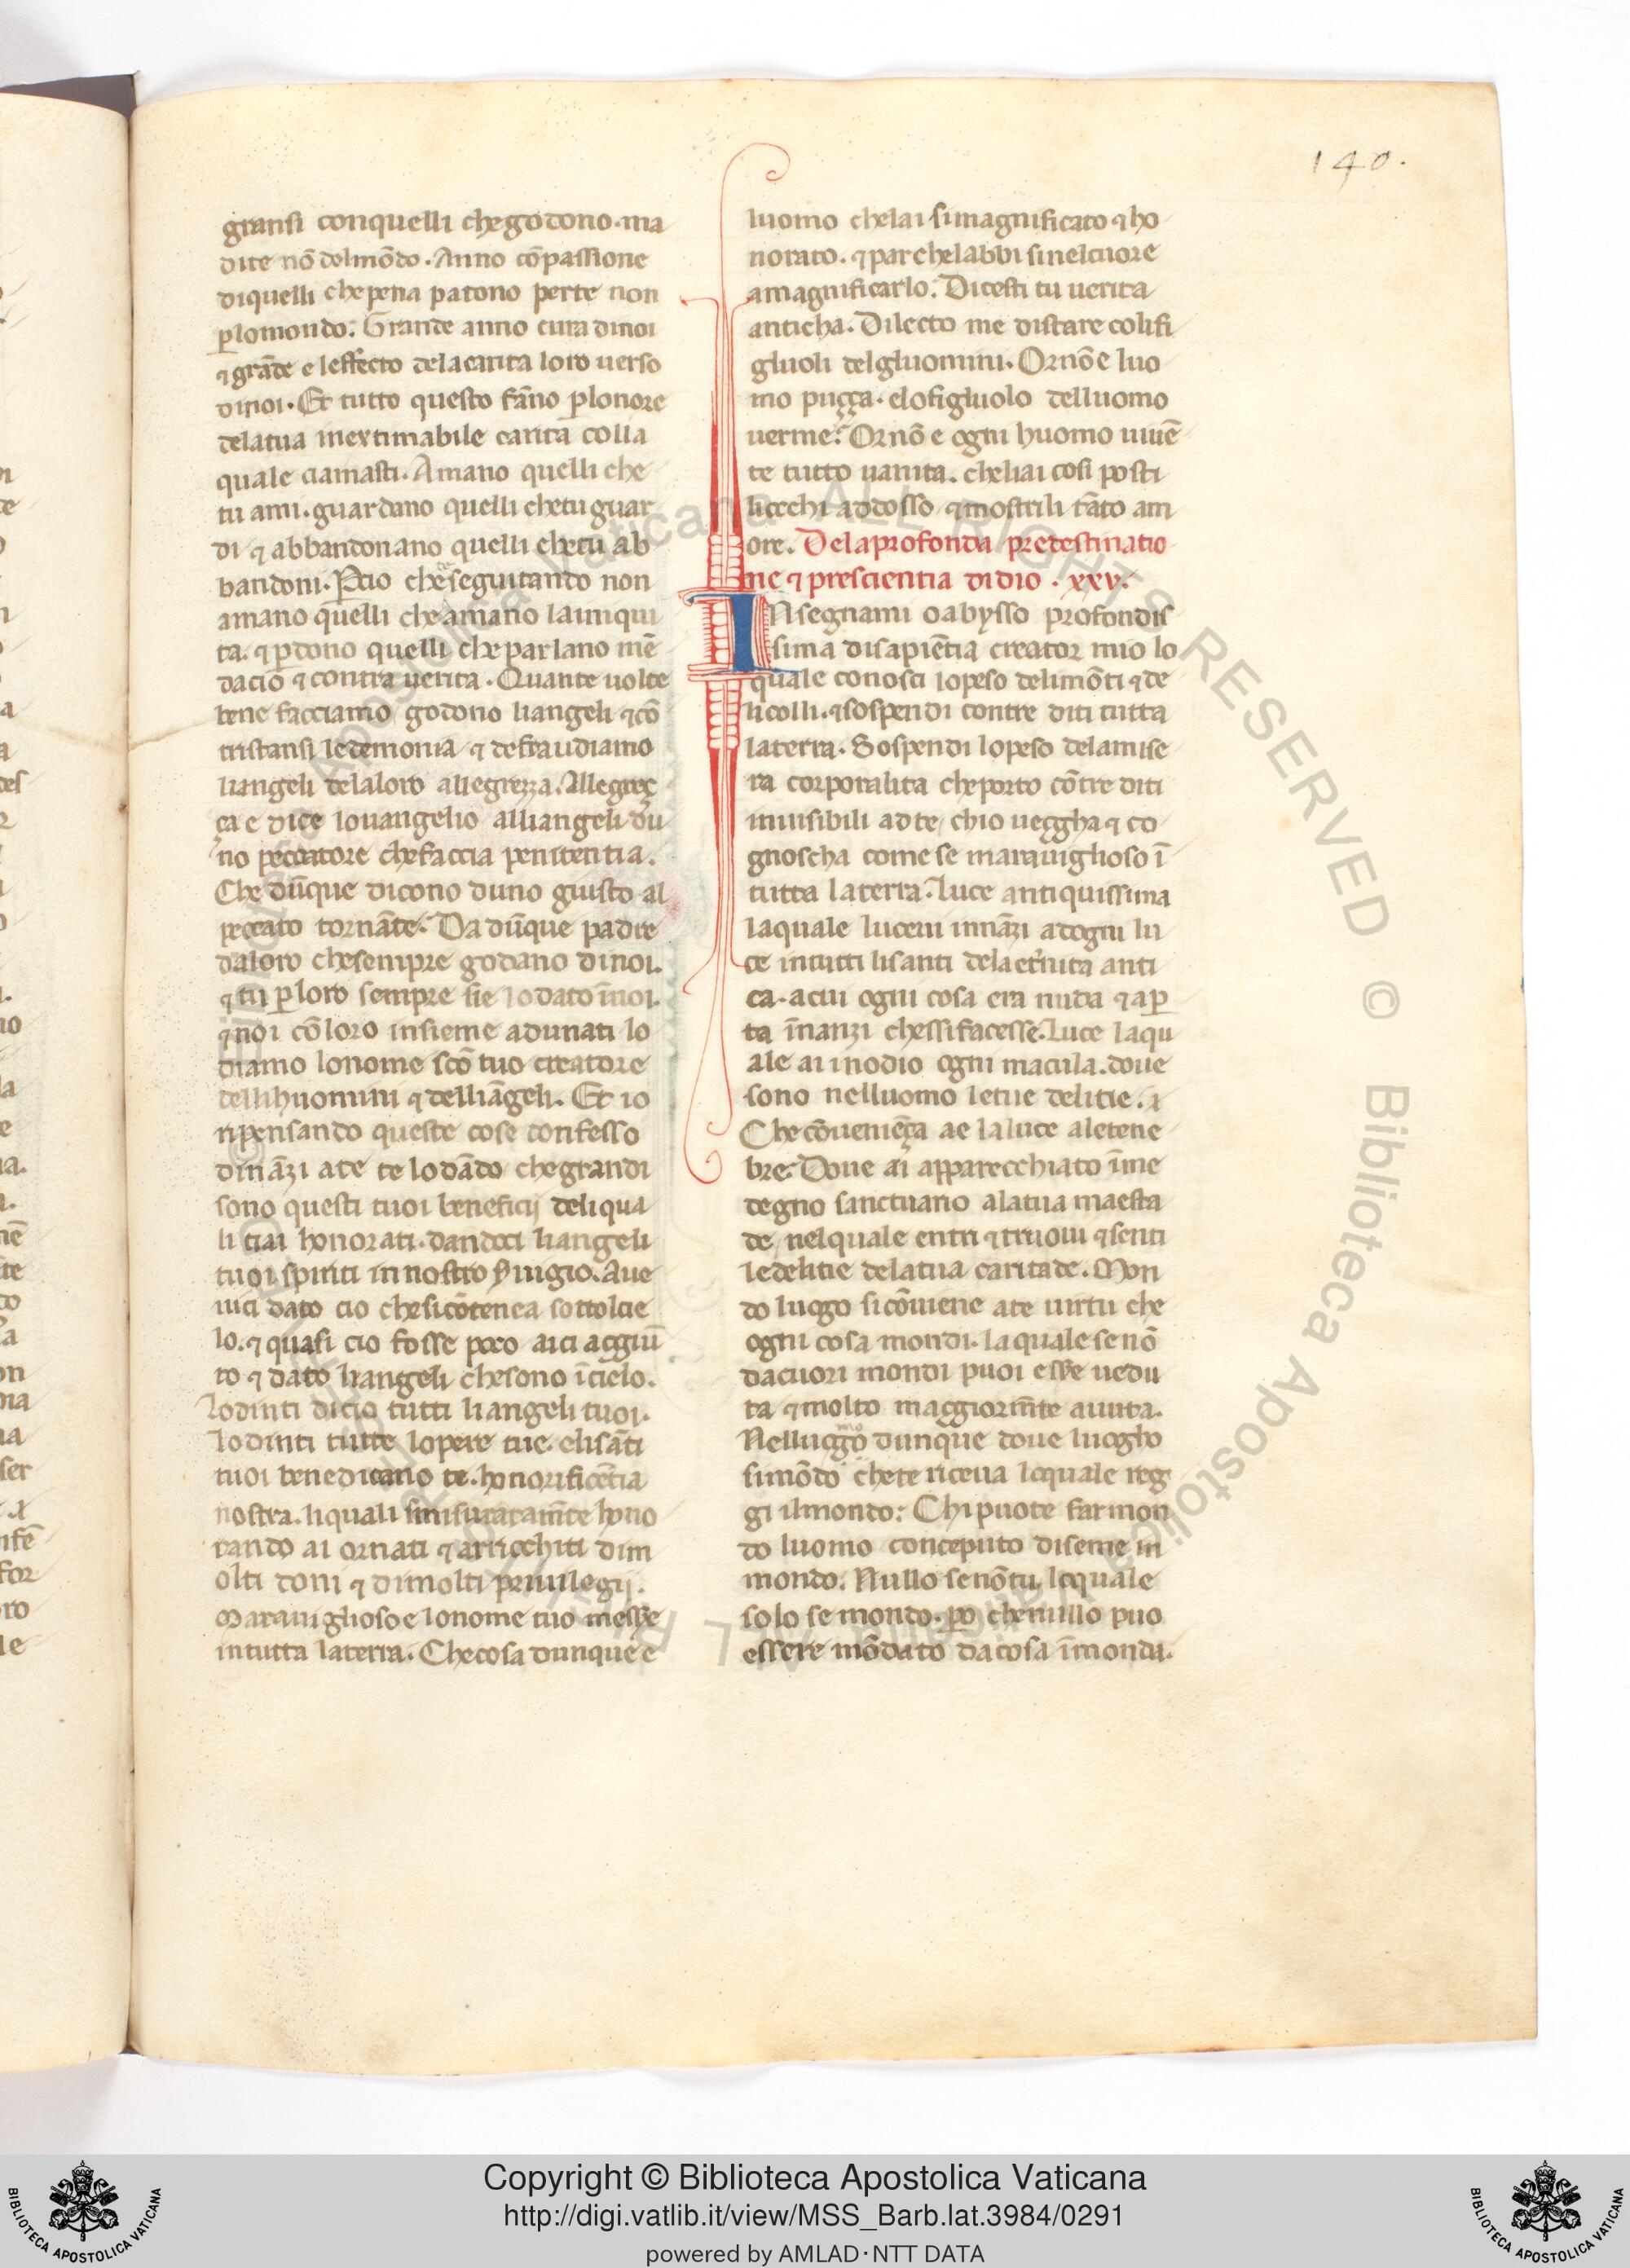 140.
gransi conquelli chegodono·ma
dite nō delmōdo·Anno cōpassione
diquelli chepena patono perte non
ꝑlomondo. Grande anno cura dinoi
⁊ grāde e leffecto delacarita loro uerso
dinoi·Et tutto questo fāno ꝑlonore
delatua inextimabile carita colla
quale ciamasti·Amano quelli che
tu ami·guardano quelli chetu guar
di ⁊ abbandonano quelli chetu ab
bandoni· che seguitando non
amano quelli che amano lainiqui
ta·⁊ ꝑdono quelli che parlano mē
dacio ⁊ contra uerita·Quante uolte
bene facciamo godono liangeli ⁊ cō
tristansi ledemonia ⁊ defraudiamo
liangeli delaloro allegrezza·Allegreç
ça e dice louangelio alliangeli du
no peccatore chefaccia penitentia.
Che dūque dicono duno giusto al
peccato tornāte. Da dūque padre
daloro chesempre godano dinoi.
⁊ tu ꝑloro sempre sie lodato īnoi.
⁊ noi cōloro insieme adunati lo
diamo lonome scō tuo creatore
dellihuomini ⁊ delliāgeli. Et io
ripensando queste cose confesso
dināzi ate te lodādo chegrandi
sono questi tuoi beneficij deli qua
li ciai honorati·dandoci liangeli
tuoi spiriti innostro Aue
uici dato cio chesicōtenea sottolcie
lo.⁊ quasi cio fosse poco aici aggiū
to ⁊ dato liangeli chesono ī cielo.
Lodinti dicio tutti li angeli tuoi.
Lodinti tutte lopere tue·elisāti
tuoi benedicano te·honorificētia
nostra·liquali smisuratamēte hono
rando ai ornati ⁊ arricchiti dim
olti doni ⁊ dimolti priuilegij.
Marauiglioso e lonome tuo messe
intutta laterra. Checosa dunque e
luomo chelai simagnificato ⁊ ho
norato·⁊ par chelabbi sinelcuore
amagnificarlo. Dicesti tu uerita
anticha. Dilecto me distare colifi
gluoli delgluomini·Or nō e luo
mo puçça·elofigluolo delluomo
uerme? Or nō e ogni huomo uiuē
te tutto uanita. cheliai cosi posti
liocchi addosso ⁊ mostrili tāto am
ore. Delaprofonda predestinatio
ne ⁊ prescientia didio·xxv.
INsegnami o abysso profondis
sima disapiētia creator mio lo
quale conosci lopeso delimōti ⁊ de
licolli·⁊ sospendi contre diti tutta
laterra. Sospendi lopeso delamise
ra corporalita cheporto cōtre diti
inuisibili adte chio uegga ⁊ co
gnoscha come se marauiglioso ī
tutta laterra·Luce antiquissima
laquale luceui innāzi adogni lu
ce intutti lisanti delaeternita anti
ca·acui ogni cosa era nuda ⁊ aꝑ
ta īnanzi chessifacesse·Luce laqu
ale ai inodio ogni macula·doue
sono nelluomo letue delitie.
Che cōueniēça ae laluce aletene
bre? Doue ai apparecchiato īme
degno sanctuario alatua maesta
de nelquale entri ⁊ truoui ⁊ senti
ledelitie delatua caritade. Mon
do luogo sicōuiene ate uirtu che
ogni cosa mondi·laquale se nō
dacuori mondi puoi essere uedu
ta ⁊ molto maggiormēte auuta.
Nelluomo dunque doue luogho
simōdo chete riceua loquale reg
gi ilmondo? Chi puote far mon
do luomo conceputo diseme in
mondo. Nullo senōtu loquale
solo se mondo·ꝑo chenullo puo
essere mōdato dacosa īmonda.
© Biblioteca Apostolica Vaticana ALL RIGHTS RESERVED
BIBLIOTECA APOSTOLICA VATICANA
Copyright © Biblioteca Apostolica Vaticana
http://digi.vatlib.it/view/MSS_Barb.lat.3984/0291
powered by AMLAD·NTT DATA
BIBLIOTECA APOSTOLICA VATICANA